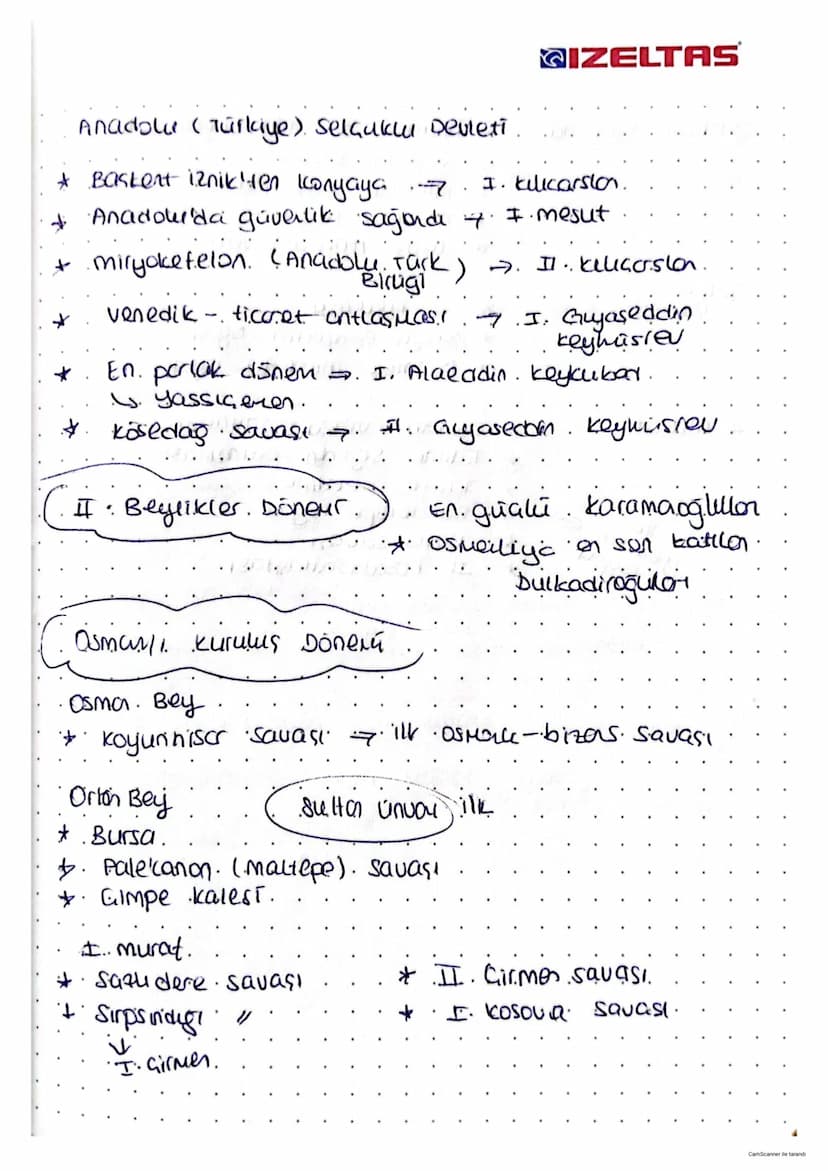 IZELTAS
Anadolu (Türkiye) Selçuklu Devleti
* Başkent iznik'ten Konyaya → I. Kılıcarslan.
* Anadolu'da güvenlik sağlandı → I. mesut
* miryokefelon (Anadolu Türk Birliği) → II. Kılıcarslan.
* venedik - ticaret antlaşması → I. Gıyaseddin keyhüsrev
* En parlak dönem ⇒ I. Alaeddin keykubat
↳ Yassıçemen.
* Kösedağ Savaşı → II. Gıyaseddin keyhüsrev
II. Beylikler Dönemi En güçlü karamaoğlulları
* Osmanlıya en son katılan
Dulkadiroğulları
Osmanlı Kuruluş Dönemi
Osman Bey
* Koyunhisar savaşı → ilk Osmanlı-bizans Savaşı
Orhan Bey Sultan ünvanı ilk
* Bursa
* Pale'canon (maltepe) Savaşı
* Çimpe kalesi.
I. murat.
* Sazlıdere savaşı * II. Çirmen savaşı.
* Sırpsındığı " * I. Kosova Savaşı.
↓
I. Çirmen.
CamScanner ile tarandı